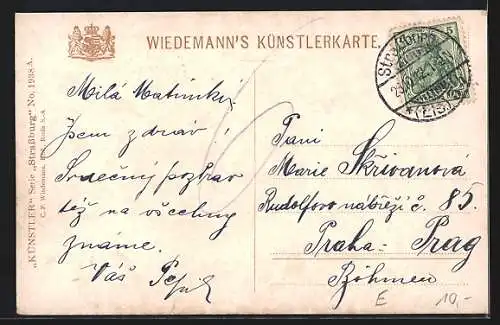 WIEDEMANN'S KÜNSTLERKARTE.
„KÜNSTLER" Serie „Straßburg" No. 1938 A.
Milá Matinko,
Jsem zdráv!
Srdečný pozdrav
též na všechny
známé.
Váš
Straßburg
* (Els.)
5
Paní
Marie Skřivanová
Rudolfovo nábřeží č. 85.
Praha - Prag
Böhmen
E 10,-